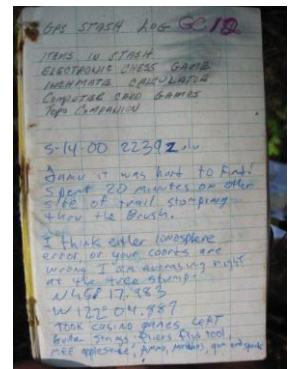 GPS STASH LOG GC12
ITEMS IN STASH
ELECTRONIC CHESS GAME
CALCULATOR
COMPUTER CARD GAMES
TOPO COMPANION
5-14-00 2239z
Damn it was hard to find!
Spent 20 minutes on other
side of trail stomping
thru the Brush.
I think either ionosphere
error, or your coords are
wrong I am averaging right
at the tree stump:
W 122° 04.987
TOOK CASINO games, LEFT
Guitar Strings, tool,
MRE applesauce, Ammo, matches, gum and